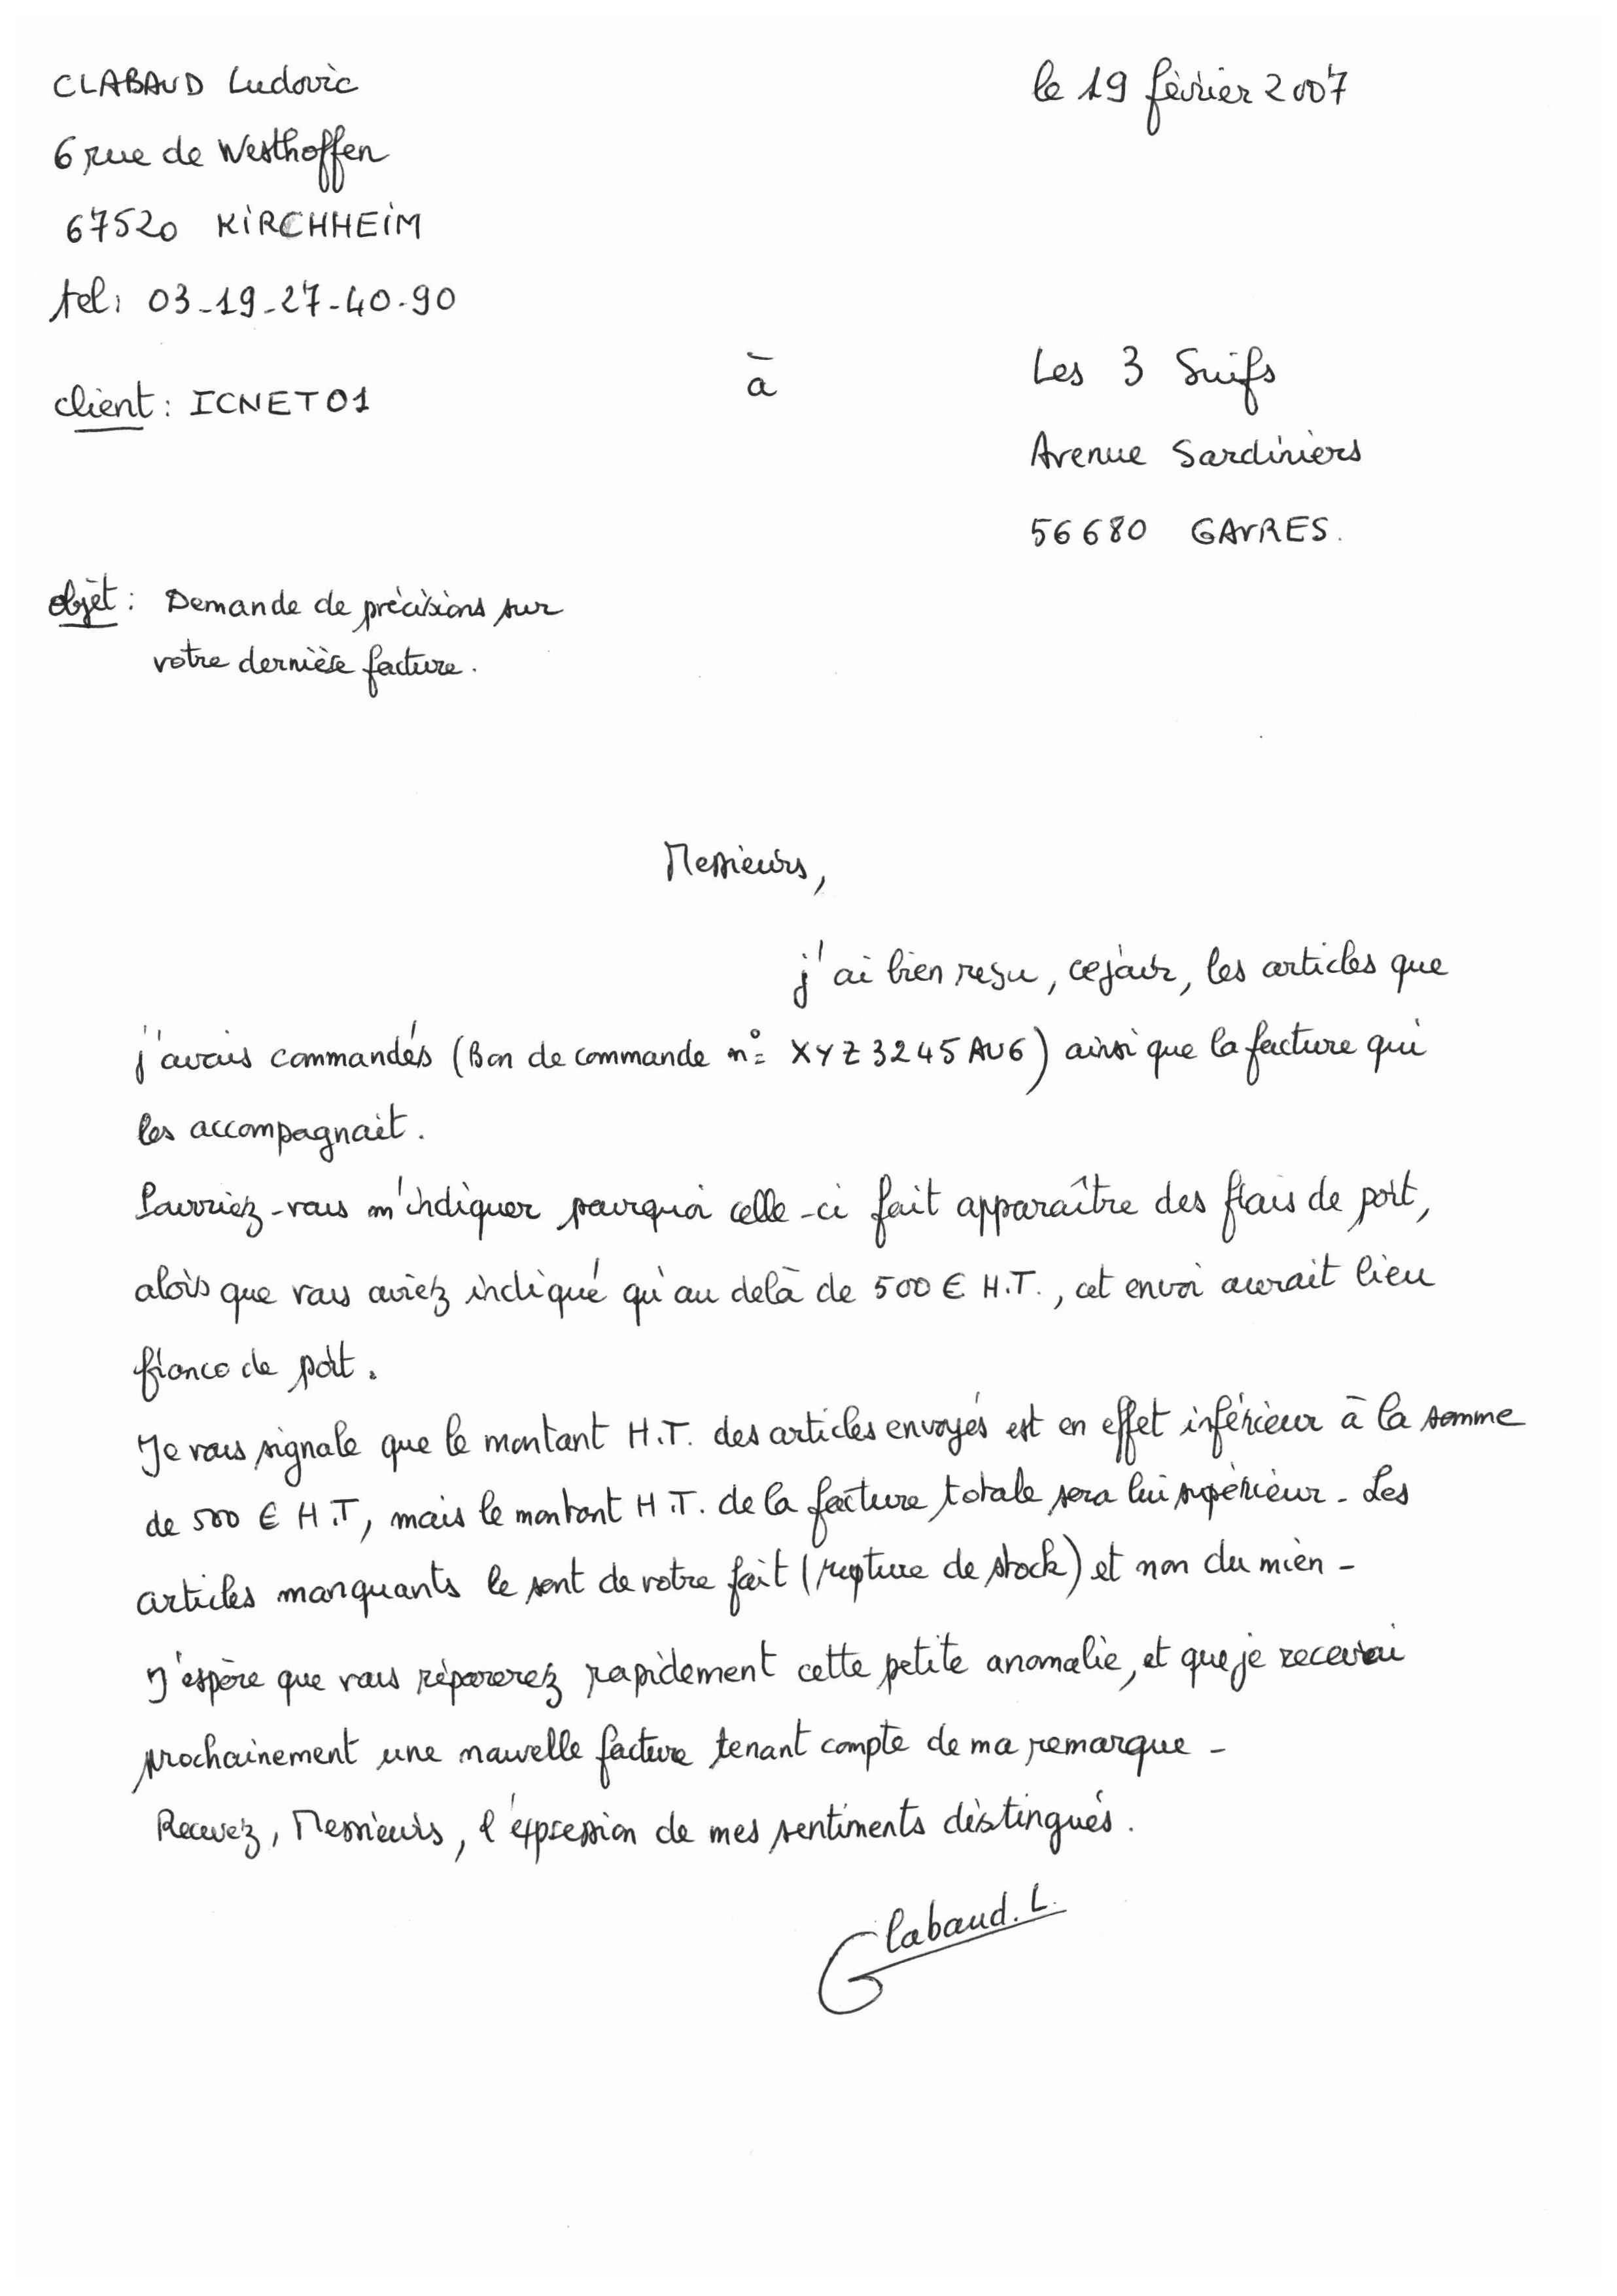 CLABAUD Ludovic
le 19 février 2007
6 rue de Westhoffen
67520 KIRCHHEIM
tel: 03-19-27-40-90
client: ICNET01
à
Les 3 Suifs
Avenue Sardiniers
56680 GAVRES.
objet: Demande de précisions sur
votre dernière facture.
Messieurs,
j'ai bien reçu, ce jour, les articles que
j'avais commandés (Bon de commande n° XYZ3245AUG) ainsi que la facture qui
les accompagnait.
Pourriez-vous m'indiquer pourquoi celle-ci fait apparaître des frais de port,
alors que vous aviez indiqué qu'au delà de 500 € H.T., cet envoi aurait lieu
franco de port.
Je vous signale que le montant H.T. des articles envoyés est en effet inférieur à la somme
de 500 € H.T, mais le montant H.T. de la facture totale sera lui supérieur. Les
articles manquants le sont de votre fait (rupture de stock) et non du mien -
J'espère que vous réparerez rapidement cette petite anomalie, et que je recevrai
prochainement une nouvelle facture tenant compte de ma remarque -
Recevez, Messieurs, l'expression de mes sentiments distingués.
Clabaud. L.